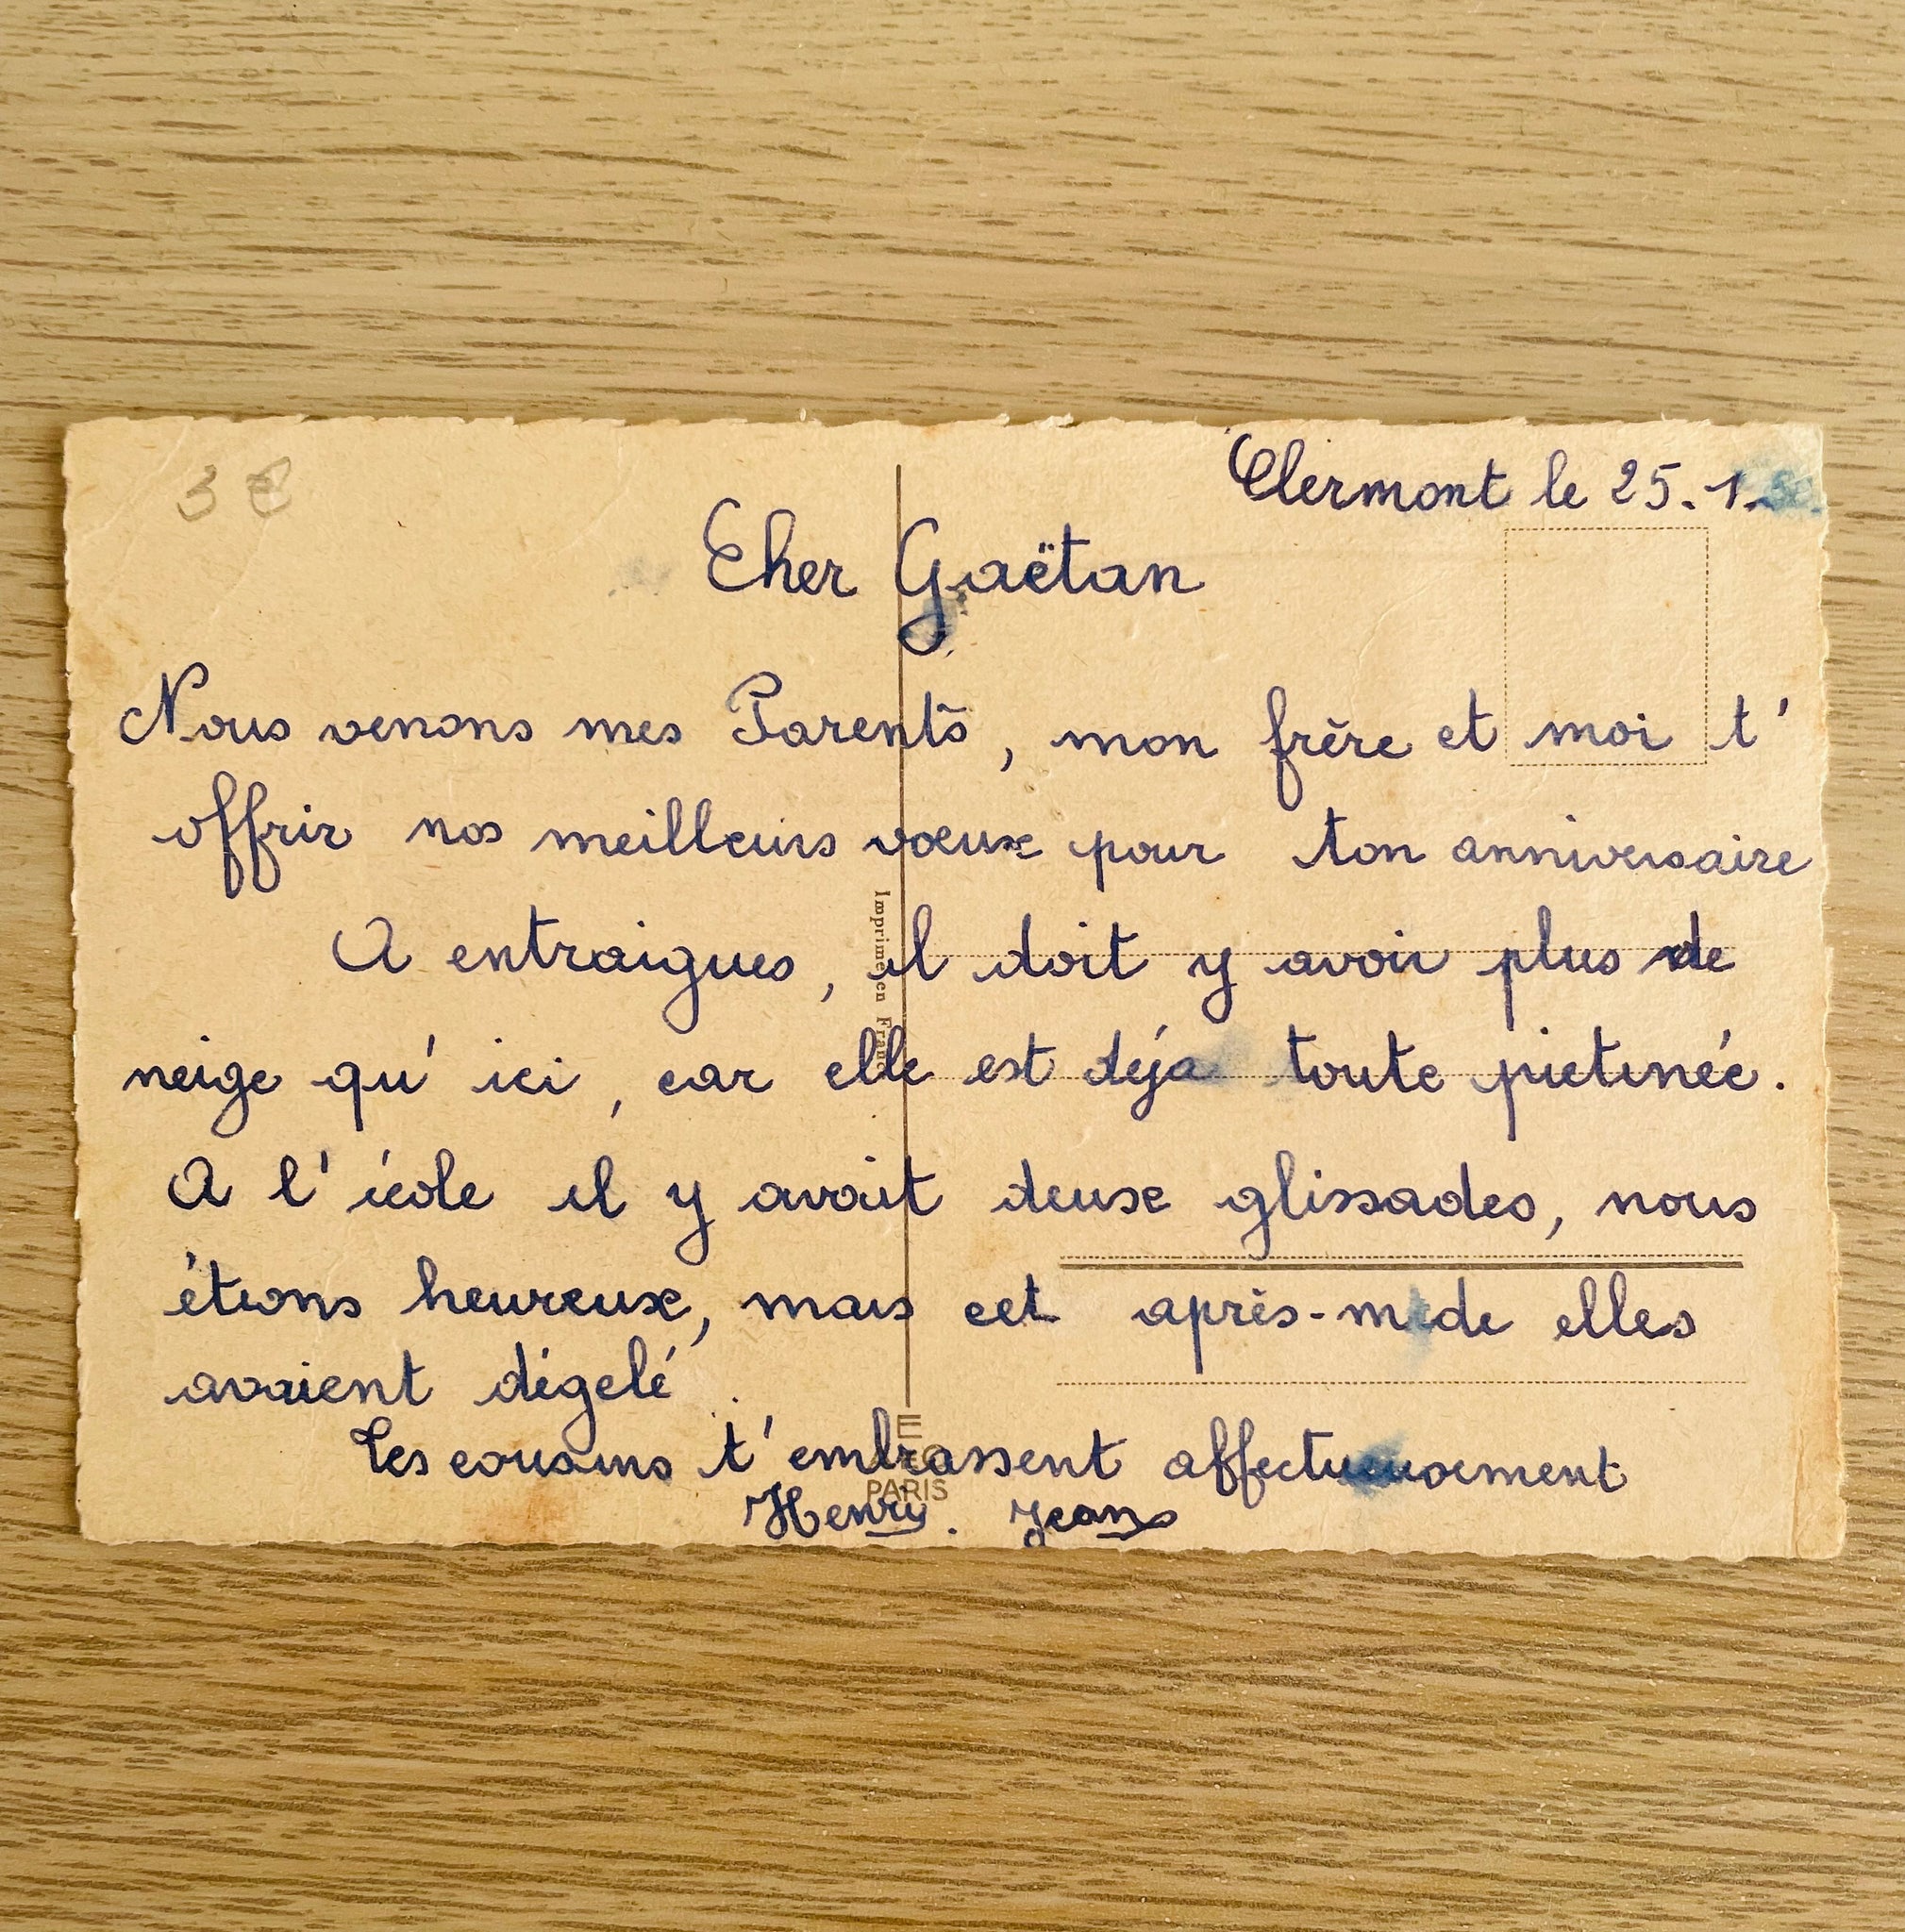 3 €
Clermont le 25. 1.
Cher Gaëtan
Nous venons mes Parents, mon frère et moi t'
offrir nos meilleurs voeux pour ton anniversaire
A entraigues, il doit y avoir plus de
neige qu'ici, car elle est déja toute pietinée.
A l'école il y avait deux glissades, nous
étions heureux, mais cet après-mide elles
avaient dégelé.
Tes cousins t'embrassent affectueusement
Henry. Jean
Imprimé en France
PARIS